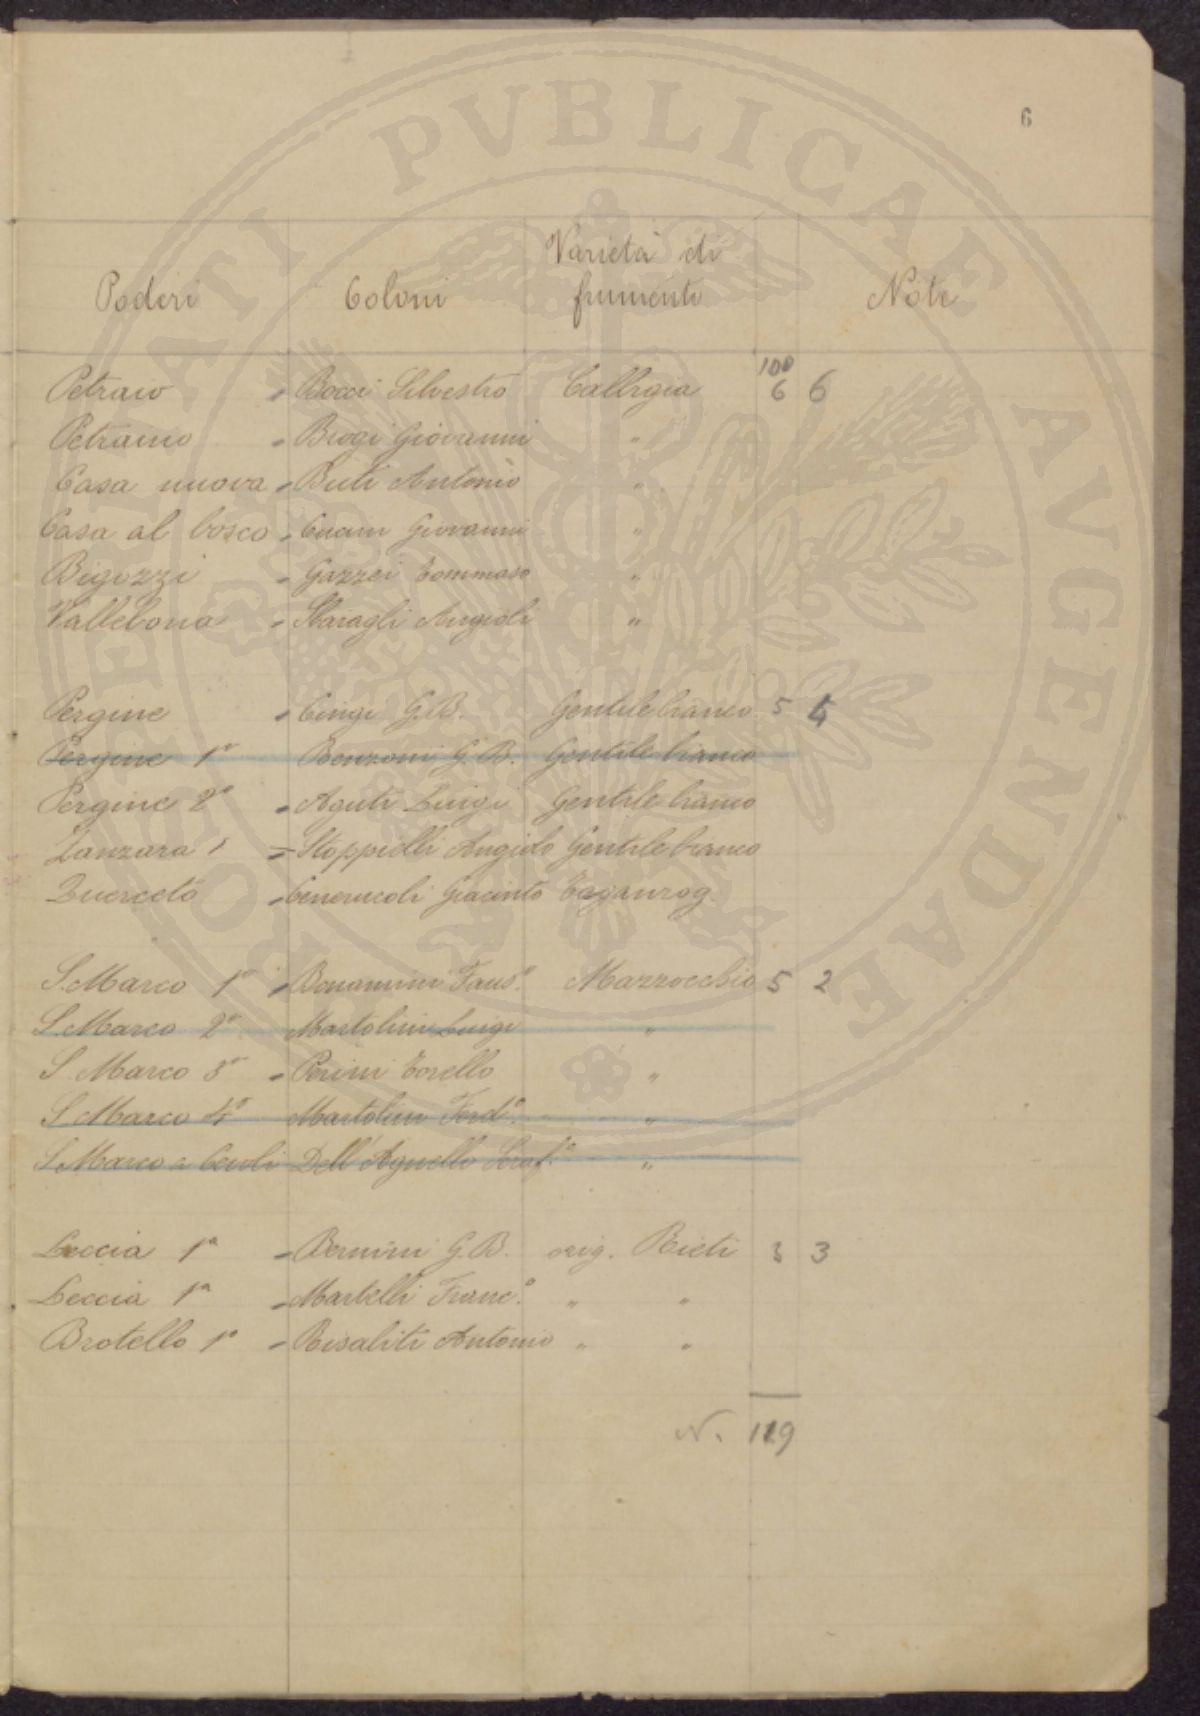 6
Poderi Coloni Varietà di frumenti Note
100
Petraio Bocci Silvestro Calbigia 6 6
Petraino Brogi Giovanni "
Casa nuova Buti Antonio "
Casa al bosco Giovanni "
Bigozzi Gazzei Tommaso "
Vallebona Angiolo "
Pergine Cingi G.B. Gentile bianco 5 4
Pergine 1° Benzoni G.B. Gentile bianco
Pergine 2° Aguti Luigi Gentile bianco
Zanzara Stoppielli Angiolo Gentile bianco
Querceto Cenerucoli Giacinto Taganrog
S. Marco 1° Bonannini Faus.° Mazzocchio 5 2
S. Marco 2° Martolini Luigi "
S. Marco 3° Perini Torello "
S. Marco 4° Martolini Ferd.° "
S. Marco a Cevoli Dell'Agnello Seraf.° "
Leccia 1ª Bernini G.B. orig. Rieti 3 3
Leccia 1ª Martelli Franc.° " "
Brotello 1° Risaliti Antonio " "
N. 119
PVBLICAE AVGENDAE